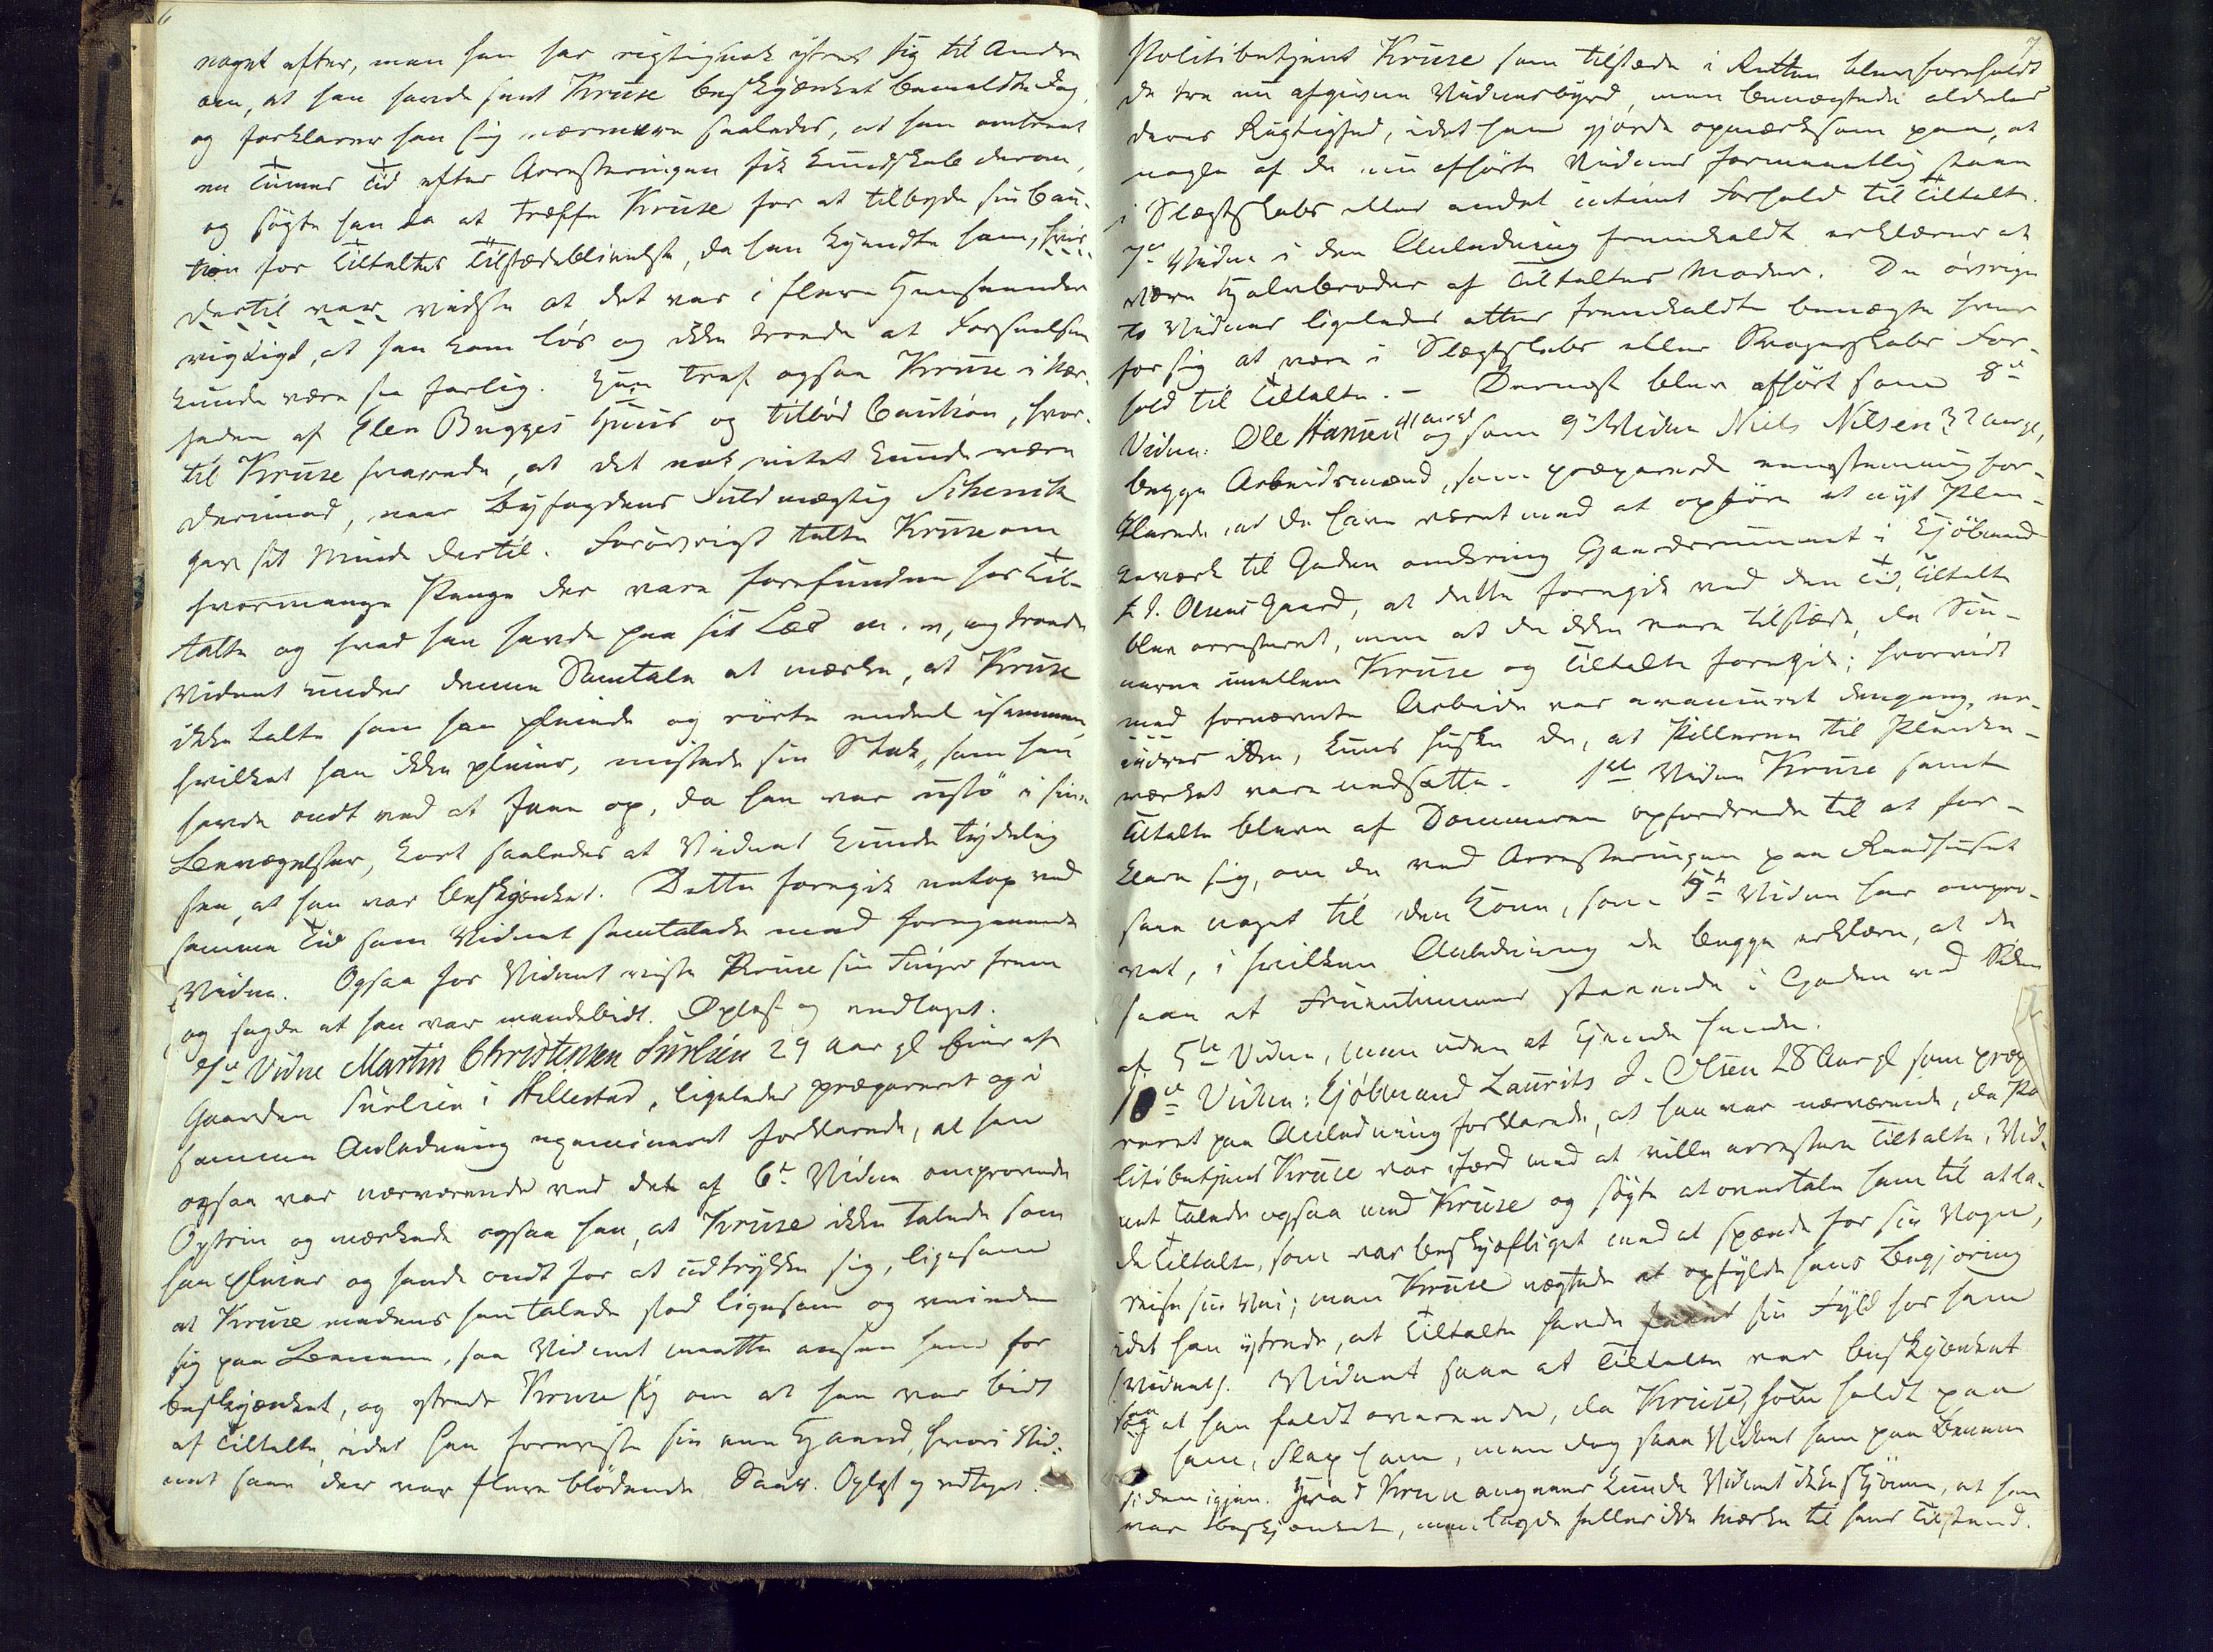 6
noget efter, men han har rigtignok ytret sig til Andre
om, at han havde seet Kruse beskjænket bemeldte Dag,
og forklarer han sig nærmere saaledes, at han omtrent
en Times Tid efter Arresteringen fik Kundskab derom,
og søgte han da at træffe Kruse for at tilbyde sin Cau-
tion for Tiltaltes Tilstædeblivelse, da han kjendte ham,
dertil var vidste at det var i flere Henseender
vigtigt, at han kom løs og ikke troede at Forseelsen
kunde være saa farlig. Han traf ogsaa Kruse i Nær-
heden af Elen Bugges Huus og tilbød Caution, hvor-
til Kruse svarede, at det nok intet kunde være
derimod, naar Byfogdens Fuldmægtig Schenck
gav sit Minde dertil. Forøvrigt talte Kruse om
hvormange Penge der vare forefundne hos Til-
talte og hvad han havde paa sit Læs m. v., og troede
Vidnet under denne Samtale at mærke, at Kruse
ikke talte som han pleiede og rørte endeel isammen,
hvilket han ikke pleier, mistede sin Stok, som han
havde ondt ved at faae op, da han var ustø i sine
Bevægelser, kort saaledes at Vidnet kunde tydelig
see, at han var beskjænket. Dette foregik netop ved
samme Tid som Vidnet samtalede med foregaaende
Vidne. Ogsaa for Vidnet viste Kruse sin Finger frem
og sagde at han var mandebidt. Oplæst og vedtaget.
7de Vidne Martin Christensen Sürlien 29 Aar gl Eier af
Gaarden Sürlien i Hillestad, ligeledes præpareret og i
samme Anledning examineret forklarede, at han
ogsaa var nærværende ved det af 6te Vidne omprovede
Optrin og mærkede ogsaa han, at Kruse ikke talede som
han pleier og havde ondt for at udtrykke sig, ligesom
at Kruse medens han talede stod ligesom og
sig paa Benene, saa Vidnet maatte ansee ham for
beskjænket, og ytrede Kruse sig om at han var bidt
af Tiltalte, idet han foreviste sin ene Haand, hvori Vid-
net saae der var flere blødende Saar. Oplæst og vedtaget.
7
Politibetjent Kruse som tilstæde i Retten blev foreholdt
de tre nu afgivne Vidnesbyrd, men benægtede aldeles
deres Rigtighed, idet han gjorde opmærksom paa, at
nogle af de nu afhørte Vidner formeentlig staae
i Slægtskabs eller andet intimt Forhold til Tiltalte.
7de Vidne i den Anledning fremkaldt erklærer at
være Halvbroder af Tiltaltes Moder. De øvrige
to Vidner ligeledes atter fremkaldte benægte hver
for sig at være i Slægtskabs eller Svogerskabs For-
hold til Tiltalte. – Dernæst blev afhørt som 8de
Vidne: Ole Hansen og som 9de Vidne Niels Nilsen 32 Aar gl,
begge Arbeidsmænd, som præparerede eenstemmig for-
klarede, at de have været med at opføre et nyt Plan-
keværk til Gaden omkring Gaardsrummet i Kjøbmand
L. J. Olsens Gaard, at dette foregik ved den Tid, Tiltalte
blev arresteret, men at de ikke vare tilstæde, da Sce-
nerne imellem Kruse og Tiltalte foregik; hvorvidt
med fornævnte Arbeide var avanceret dengang, er-
indres ikke, kuns huske de, at Pillerne til Planke-
værket vare nedsatte. 1ste Vidne Kruse samt
Tiltalte bleve af Dommeren opfordrede til at for-
klare sig, om de ved Arresteringen paa Raadhuset
saae noget til den Kone, som 5te Vidne har ompro-
vet, i hvilken Anledning de begge erklære, at de
saae et Fruentimmer staaende i Gaden ved Siden
af 5te Vidne, men uden at kjende hende.
10de Vidne: Kjøbmand Laurits J. Olsen 28 Aar gl som præpa-
reret paa Anledning forklarede, at han var nærværende, da Po-
litibetjent Kruse var ifærd med at ville arrestere Tiltalte, Vid-
net talede ogsaa med Kruse og søgte at overtale ham til at la-
de Tiltalte, som var beskjæftiget med at spænde for sin Vogn,
reise sin Vei; men Kruse nægtede at opfylde hans Begjæring
idet han ytrede, at Tiltalte havde faaet sin Fyld hos ham
(Vidnet). Vidnet saae at Tiltalte var beskjænket
saa at han faldt overende, da Kruse, som holdt paa
ham, slap ham, men dog saae Vidnet ham paa Benene
siden igjen. Hvad Kruse angaaer kunde Vidnet ikke skjønne, at han
var beskjænket, men lagde heller ikke Mærke til hans Tilstand.